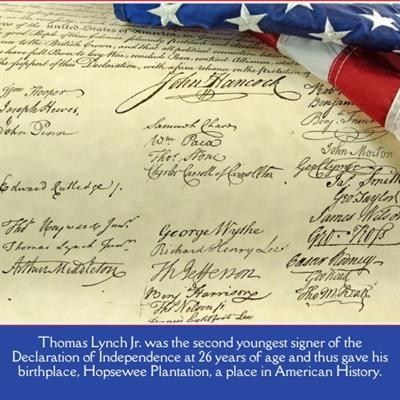 the United States of America
good People of these Colonies
to the British Crown, and that all political connection
full Power to levy War, conclude Peace, contract Alliances,
the support of this Declaration, with a firm reliance on the protection of
John Hancock
Wm Hooper
Joseph Hewes,
John Penn
Edward Rutledge /.
Thos Heyward Junr.
Thomas Lynch Junr.
Arthur Middleton
Samuel Chase
Wm Paca
Thos Stone
Charles Carroll of Carrollton
George Wythe
Richard Henry Lee
Th Jefferson
Benj Harrison
Thos Nelson jr.
Francis Lightfoot Lee
Benjamin
John Morton
Geo Clymer
Jas. Smith
Geo. Taylor
James Wilson
Geo. Ross
Caesar Rodney
Geo Read
Tho M:Kean
Thomas Lynch Jr. was the second youngest signer of the
Declaration of Independence at 26 years of age and thus gave his
birthplace, Hopsewee Plantation, a place in American History.